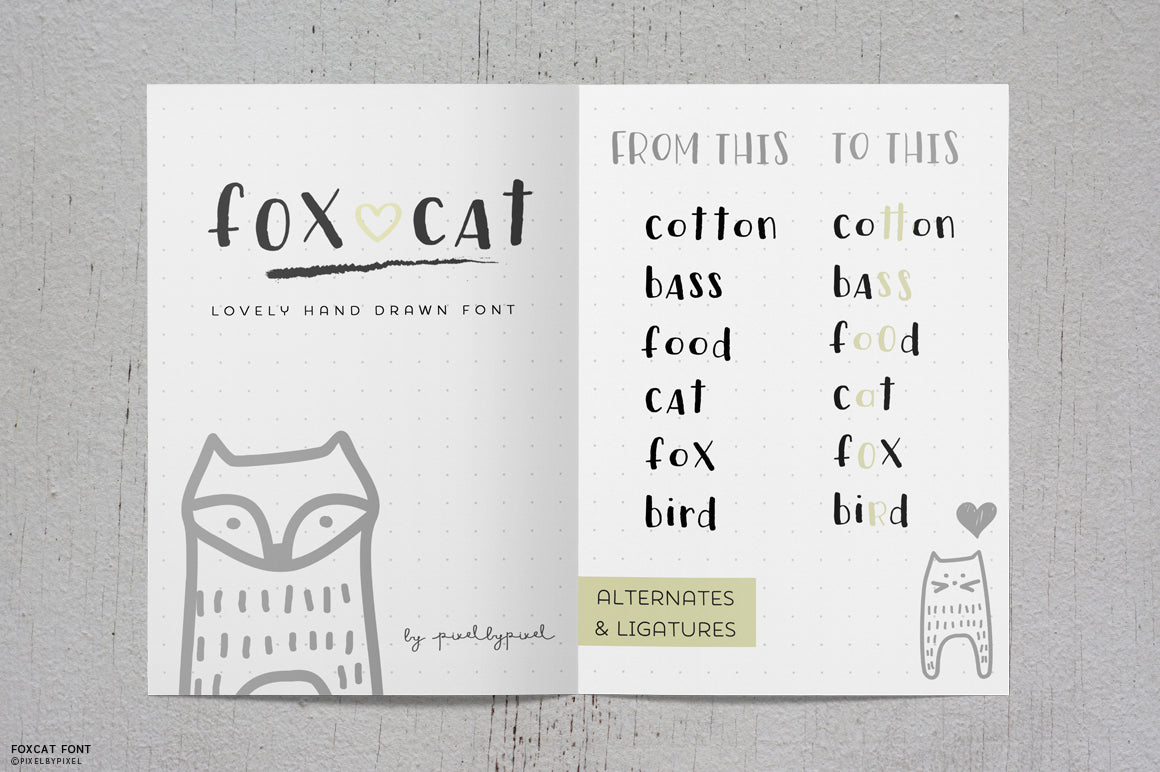 foX♡cAt
LOVELY HAND DRAWN FONT
by pixelbypixel
FROM THIS
TO THIS
cotton
cotton
bAss
bAss
food
foOd
cAt
cat
foX
fOX
bird
biRd
ALTERNATES
& LIGATURES
FOXCAT FONT
©PIXELBYPIXEL